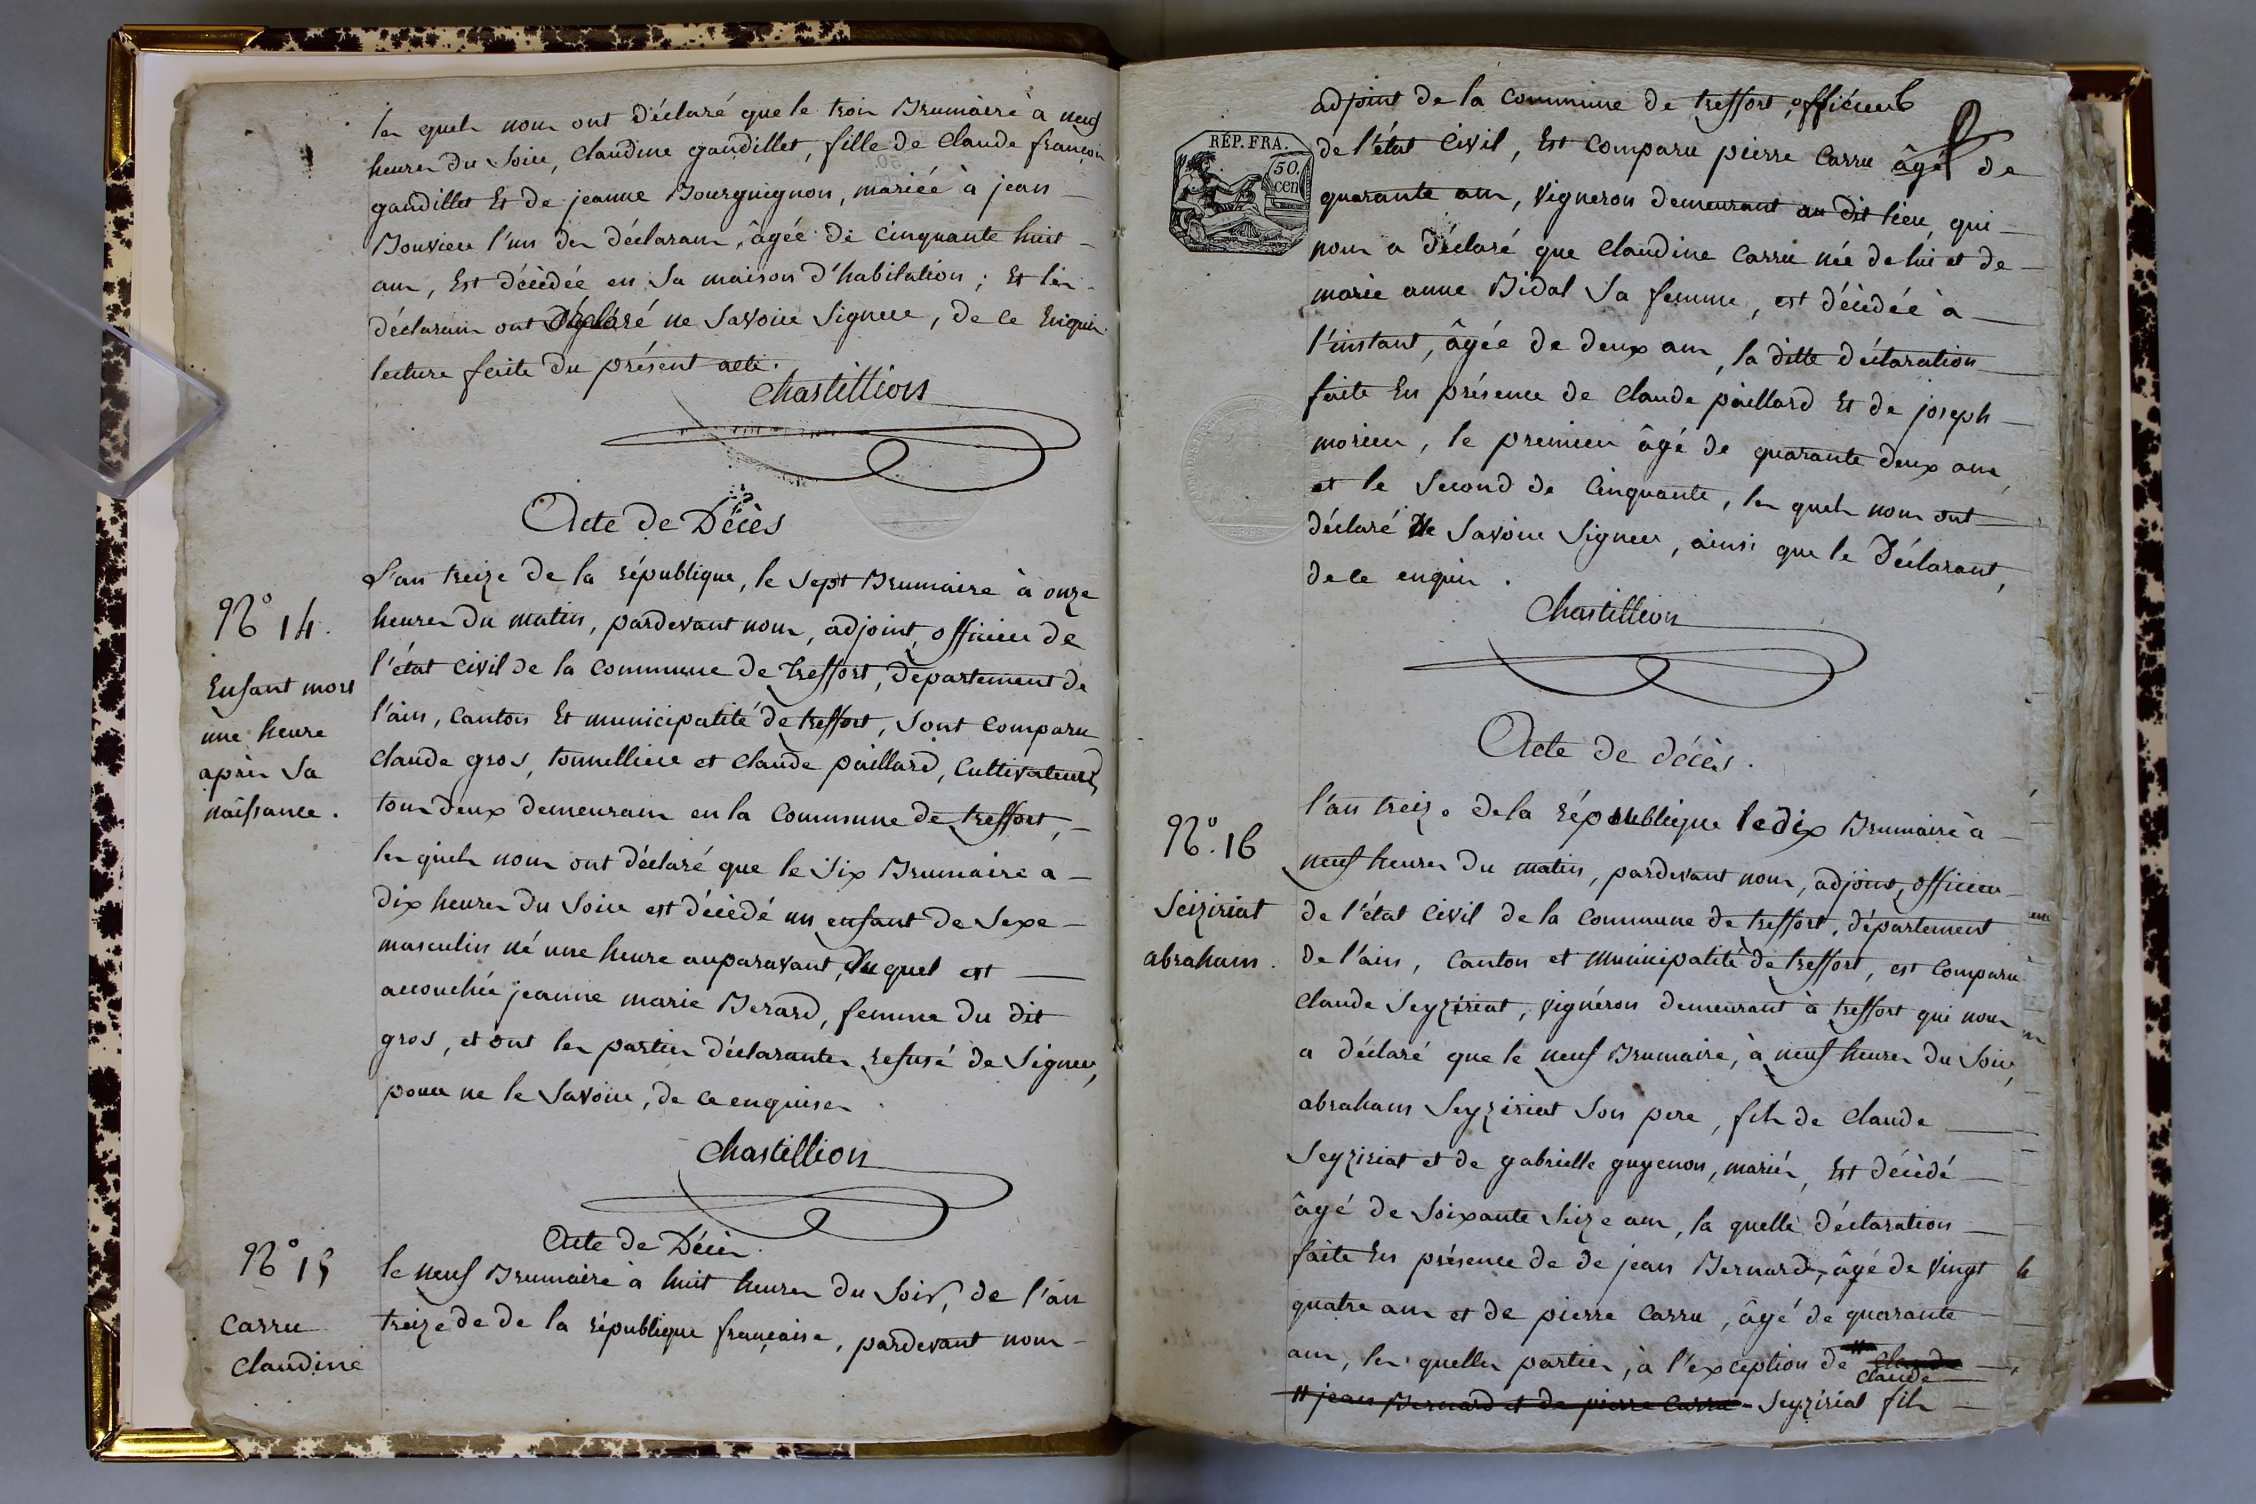 les quels nous ont déclaré que le trois Brumaire à neuf
heures du soir, Claudine gaudillet, fille de Claude françois
gaudillet Et de jeanne Bourguignon, mariée à jean
Bouvier l'un des déclarans, âgée de cinquante huit
ans, Est décédée en sa maison d'habitation ; Et les
déclarans ont Déclaré ne Savoir Signer, de ce Enquis
lecture faite du présent acte.
Chastillion
Acte de Décès
N° 14.
Enfant mort
une heure
après sa
naissance.
L'an treize de la république, le sept Brumaire à onze
heures du matin, pardevant nous, adjoint, officier de
l'état civil de la commune de treffort, département de
l'ain, canton Et municipalité de treffort, sont comparu
Claude gros, tonnellier et Claude paillard, Cultivateurs
tous deux demeurans en la Commune de treffort,
les quels nous ont déclaré que le six Brumaire à
dix heures du Soir est décédé un enfant de Sexe
masculin né une heure auparavant, du quel est
accouchée jeanne marie Berard, femme du dit
gros, et ont les parties déclarantes refusé de Signer,
pour ne le Savoir, de ce enquises
Chastillion
Acte de Décès.
N° 15
Carru
Claudine
le neuf Brumaire à huit heures du Soir, de l'an
treize de de la république française, pardevant nous
adjoint de la commune de treffort, officier
RÉP. FRA.
50.
cen
de l'état Civil, Est comparu pierre Carru âgé de
quarante ans, Vigneron demeurant au dit lieu, qui
nous a déclaré que Claudine Carru née de lui et de
marie anne Bidal Sa femme, est décédée à
l'instant, âgée de deux ans, la ditte déclaration
faite En présence de Claude paillard Et de joseph
morier, le premier âgé de quarante deux ans,
et le Second de Cinquante, les quels nous ont
déclaré Ne Savoir Signer, ainsi que le Déclarant,
de ce enquis.
Chastillion
Acte de décès.
N°. 16
Seiziriat
abraham.
l'an treize de la République le dix Brumaire à
neuf heures du matin, pardevant nous, adjoint, officier
de l'état Civil de la commune de treffort, département
de l'ain, Canton et Municipalité de treffort, est comparu
Claude Seyziriat, vigneron demeurant à treffort qui nous
a déclaré que le neuf Brumaire, à neuf heures du Soir,
abraham Seyziriat Son pere, fils de Claude
Seyziriat et de gabrielle guyenon, mariés, Est décédé
âgé de Soixante Seize ans, la quelle déclaration
faite En présence de de jean Bernard, âgé de vingt
quatre ans et de pierre Carru, âgé de quarante
ans, les quelles parties, à l'exception de Claude
Claude
jean Bernard et de pierre Carru Seyziriat fils